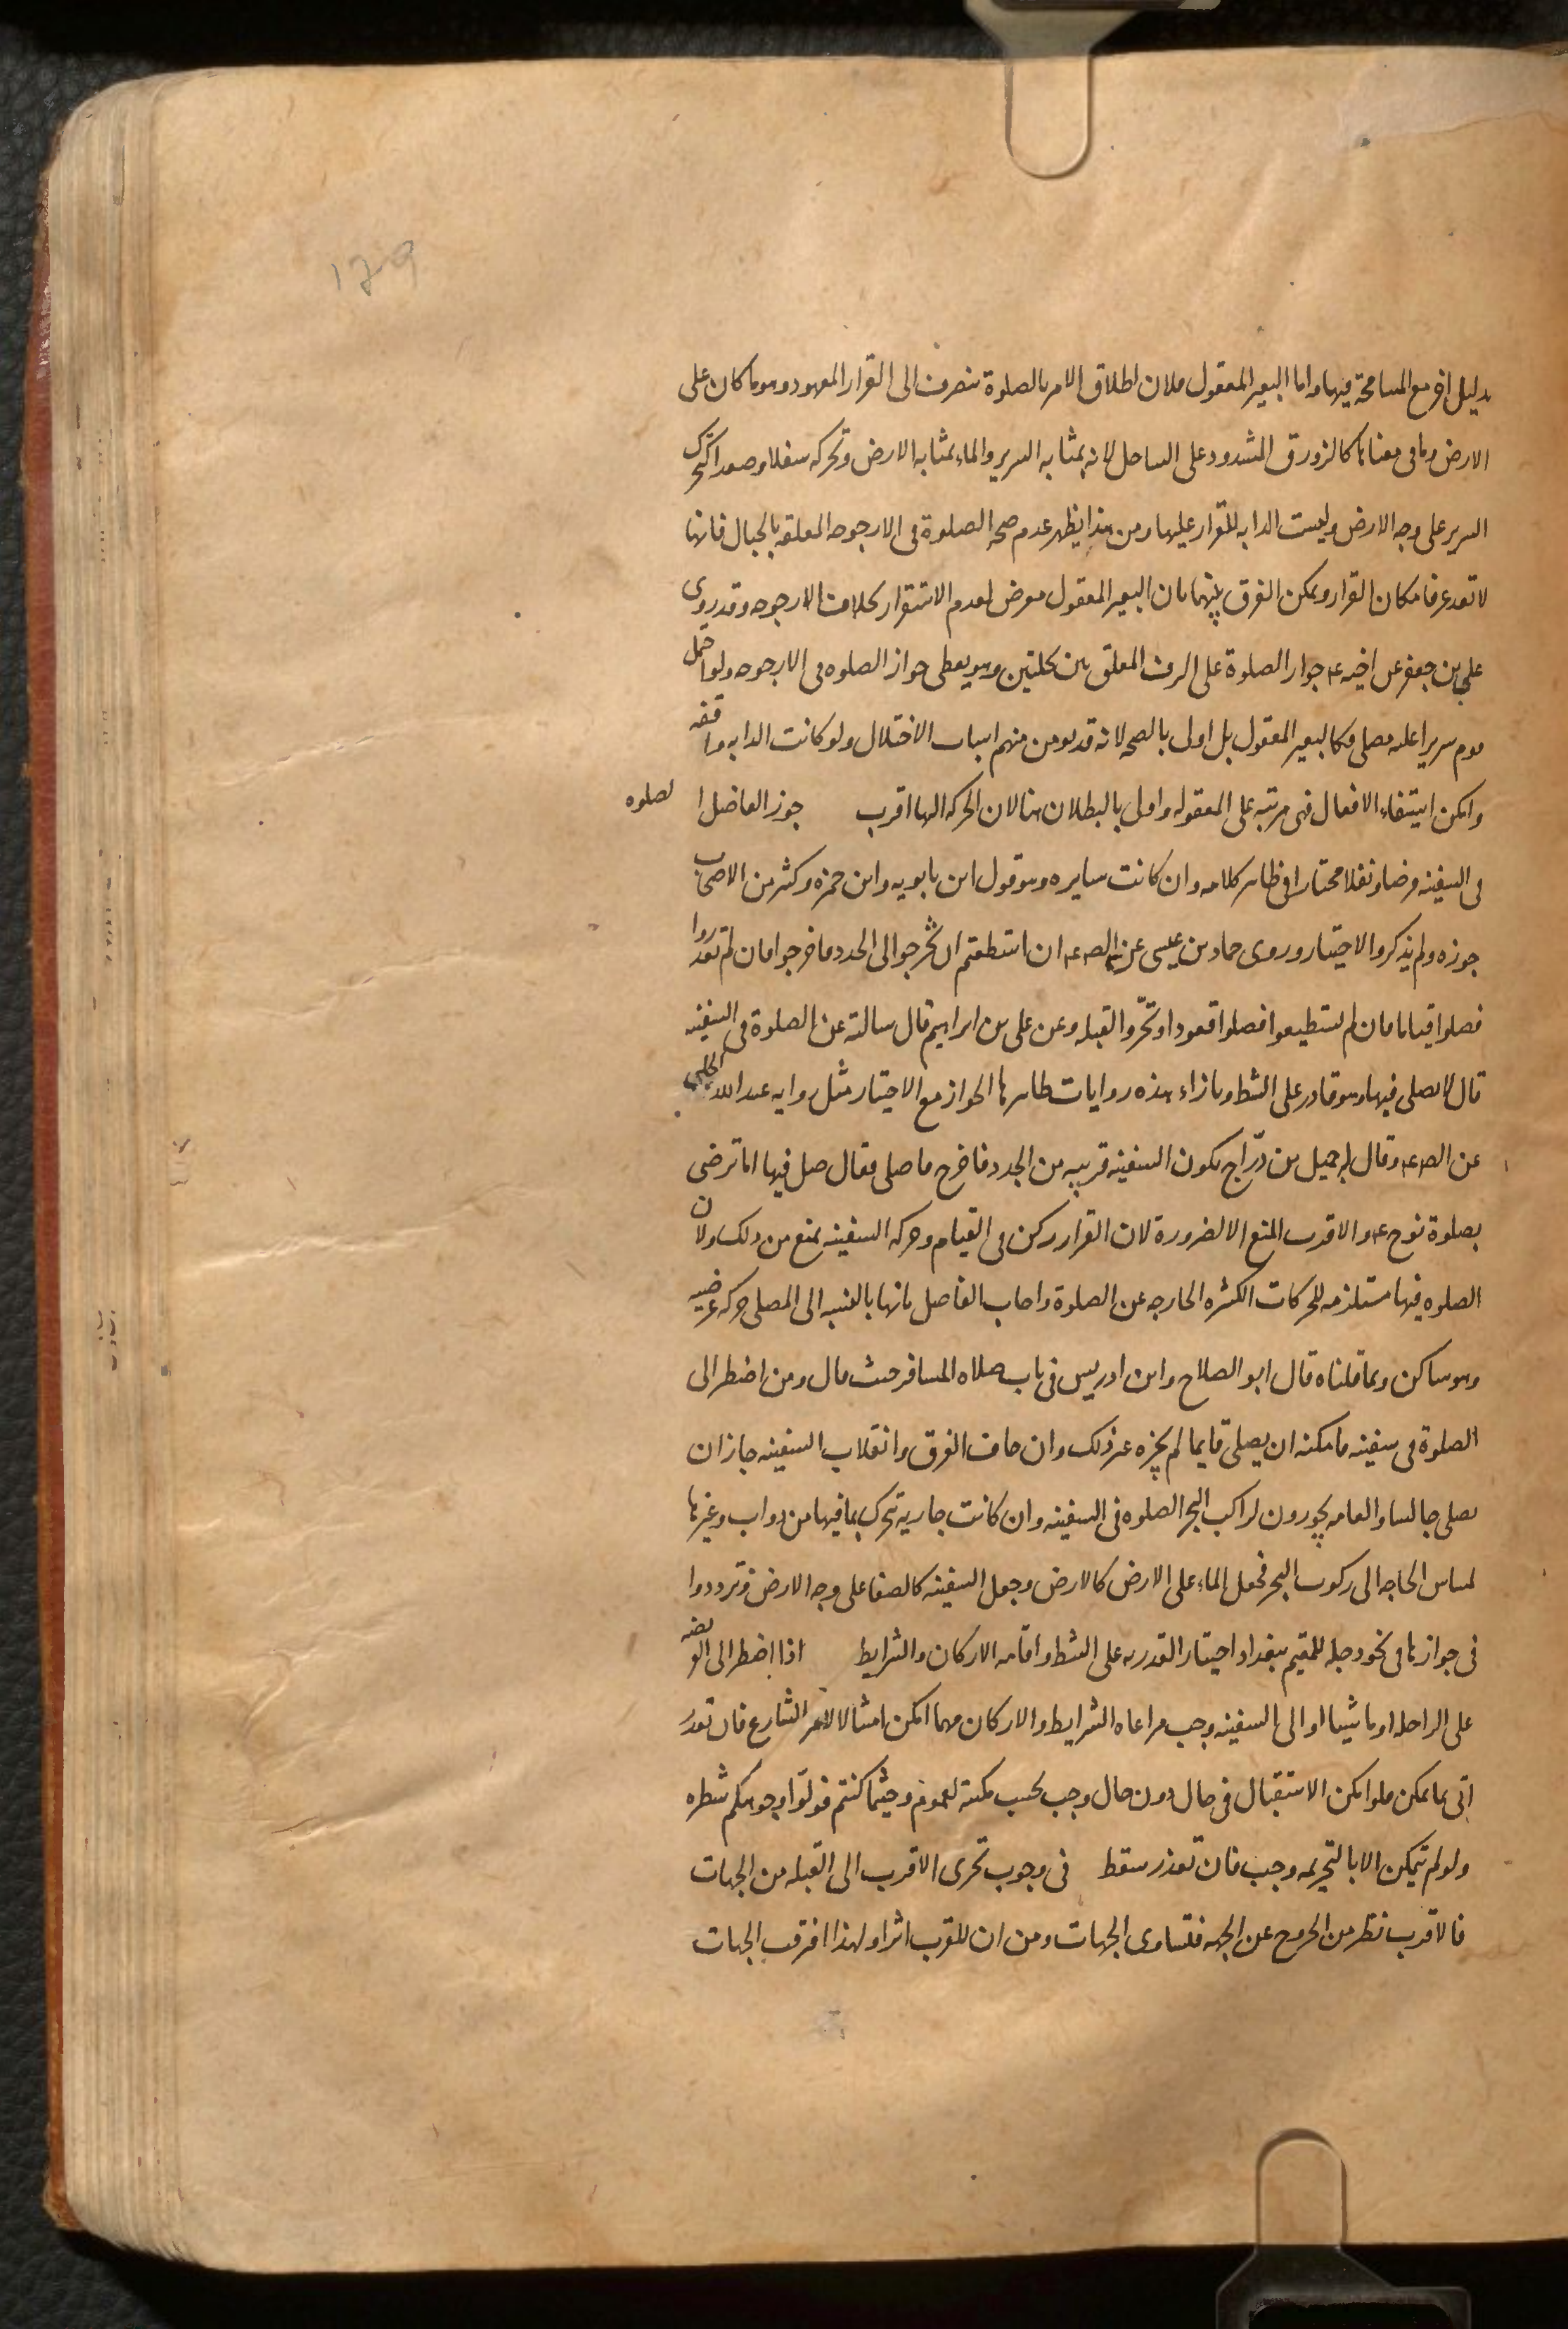 ١٧٩
بدليل اخر مع المسامحة فيها واما البعير المعقول فلان اطلاق الامر بالصلوة ينصرف الى القرار المعهود وهو ما كان على
الارض وما فى معناها كالزورق المشدود على الساحل لانه بمثابه السرير والماء بمثابه الارض وتحركه سفلا وصعدا كتحرك
السرير على وجه الارض وليست الدابه للقرار عليها ومن هذا يظهر عدم صحه الصلوة فى الارجوحه المعلقه بالحبال فانها
لا تعد عرفا مكان القرار ويمكن الفرق بينهما بان البعير المعقول معرض لعدم الاستقرار بخلاف الارجوحه وقد روى
على بن جعفر عن اخيه ع جواز الصلوة على الرف المعلق بين نخلتين وهو يعطى جواز الصلوه فى الارجوحه ولو احتمل
قوم سريرا عليه مصلى فكالبعير المعقول بل اولى بالصحه لانه قد يومن منهم اسباب الاختلال ولو كانت الدابه واقفه
وامكن استيفاء الافعال فهى مرتبه على المعقوله واولى بالبطلان هنا لان الحركه الها اقرب جوز الفاضل الصلوه
فى السفينه فرضا ونفلا مختارا فى ظاهر كلامه وان كانت سايره وهو قول ابن بابويه وابن حمزه وكثير من الاصحاب
جوزه ولم يذكروا الاختيار وروى حماد بن عيسى عن الص ع ان استطعتم ان تخرجوا الى الجدد فاخرجوا فان لم تقدروا
فصلوا قياما فان لم تستطيعوا فصلوا قعودا وتحرّوا القبله وعن على بن ابراهيم قال سالته عن الصلوة فى السفينه
قال لا يصلى فيها وهو قادر على الشط وبازاء هذه روايات ظاهرها الجواز مع الاختيار مثل روايه عبد الله الحلبى
عن الص ع وقال له جميل بن درّاج تكون السفينه قريبه من الجدد فاخرج فاصلى فقال صل فيها اما ترضى
بصلوة نوح ع والاقرب المنع الا لضرورة لان القرار ركن فى القيام وحركه السفينه تمنع من ذلك ولان
الصلوه فيها مستلزمه للحركات الكثيره الخارجه عن الصلوة واجاب الفاضل بانها بالنسبه الى المصلى حركه عرضيه
وهو ساكن وبما قلناه قال ابو الصلاح وابن ادريس فى باب صلاه المسافر حيث قال ومن اضطر الى
الصلوة فى سفينه فامكنه ان يصلى قايما لم يجزه غير ذلك وان خاف الغرق وانقلاب السفينه جاز ان
يصلى جالسا والعامه يجوزون لراكب البحر الصلوه فى السفينه وان كانت جاريه تتحرك بما فيها من دواب وغيرها
لمساس الحاجه الى ركوب البحر فجعل الماء على الارض كالارض وجعل السفينه كالصفا على وجه الارض وترددوا
فى جوازها فى نحو دجله للمقيم ببغداد اختيار القدرته على الشط واقامه الاركان والشرايط اذا اضطر الى الفريضه
على الراحله او ماشيا او الى السفينه وجب مراعاه الشرايط والاركان مهما امكن امتثالا لامر الشارع فان تعذر
اتى بما يمكن فلو امكن الاستقبال فى حال دون حال وجب بحسب مكنته لعموم وحيثما كنتم فولّوا وجوهكم شطره
ولو لم يتمكن الا بالتحريمه وجب فان تعذر سقط فى وجوب تحرى الاقرب الى القبله من الجهات
فالاقرب نظر من الخروج عن الجهه فتتساوى الجهات ومن ان للقرب اثرا ولهذا افترقت الجهات